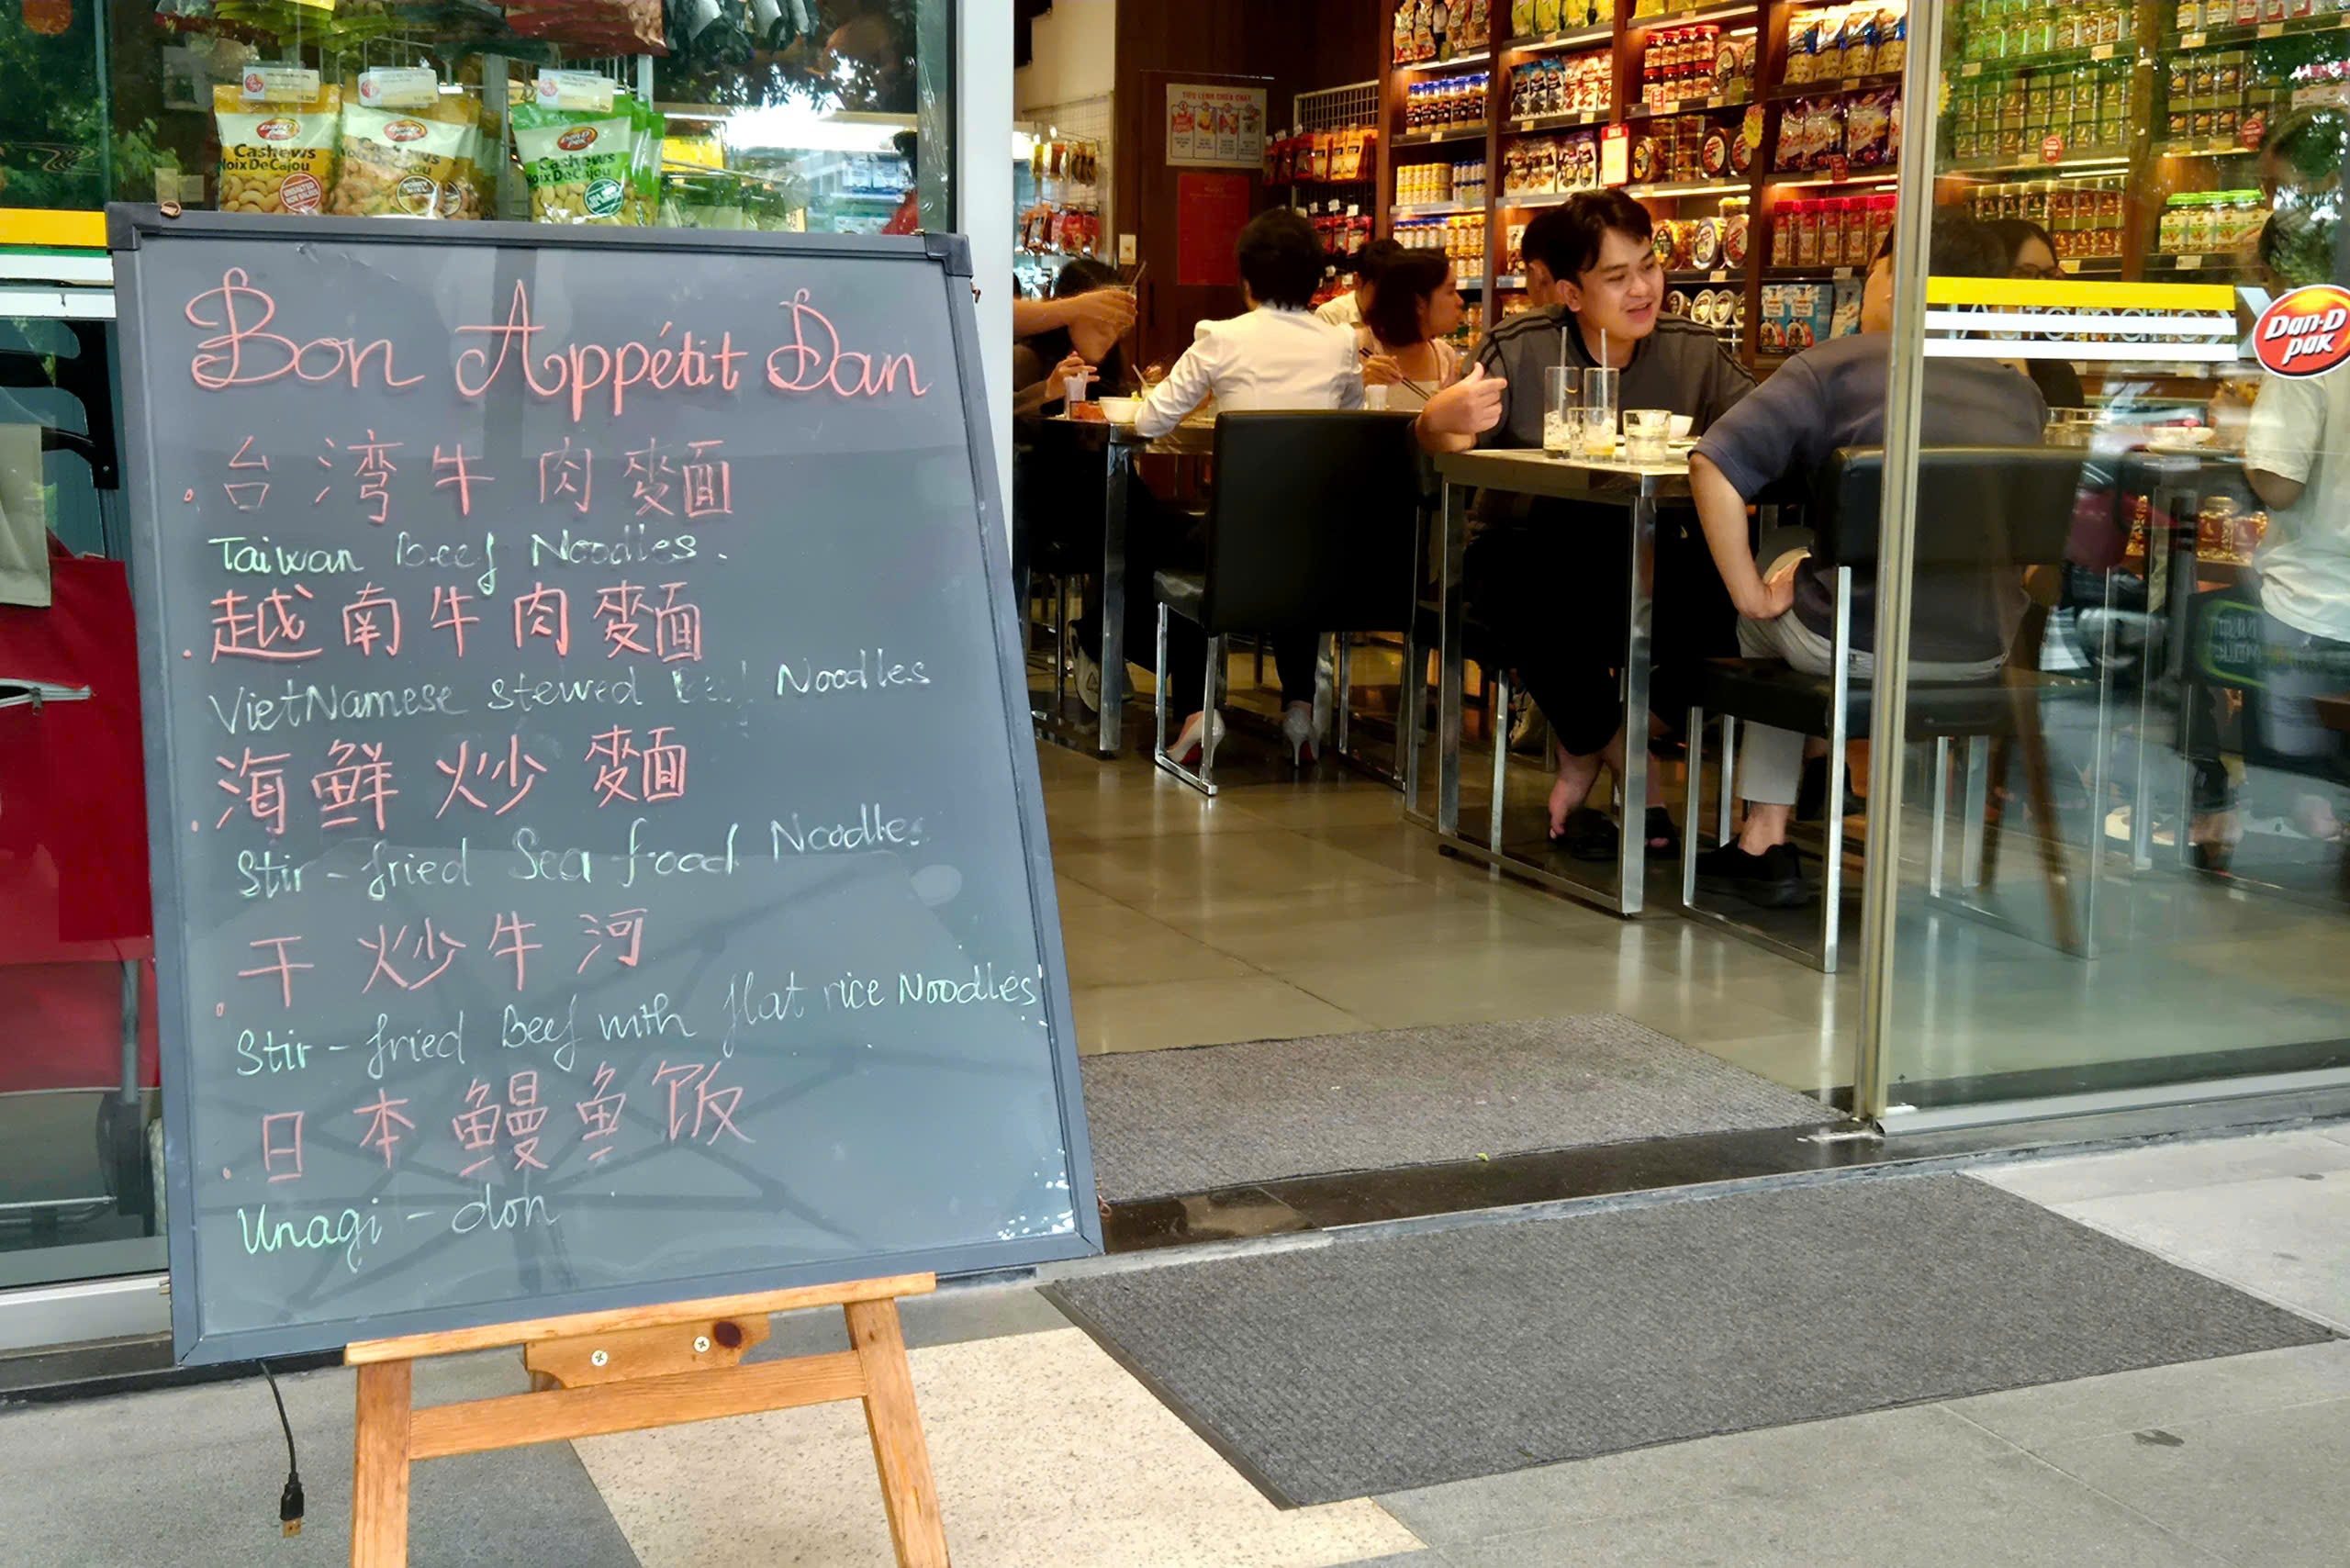 Bon Appétit Dan
. 台湾牛肉麵
Taiwan Beef Noodles.
. 越南牛肉麵
VietNamese stewed Beef Noodles
. 海鲜炒麵
Stir-fried Sea food Noodles
. 干炒牛河
Stir-fried Beef with flat rice Noodles
. 日本鳗鱼饭
Unagi-don
Cashews
Noix De Cajou
Cashews
Cashews
Noix De Cajou
TIÊU LỆNH CHỮA CHÁY
Automatic
Dan-D
pak